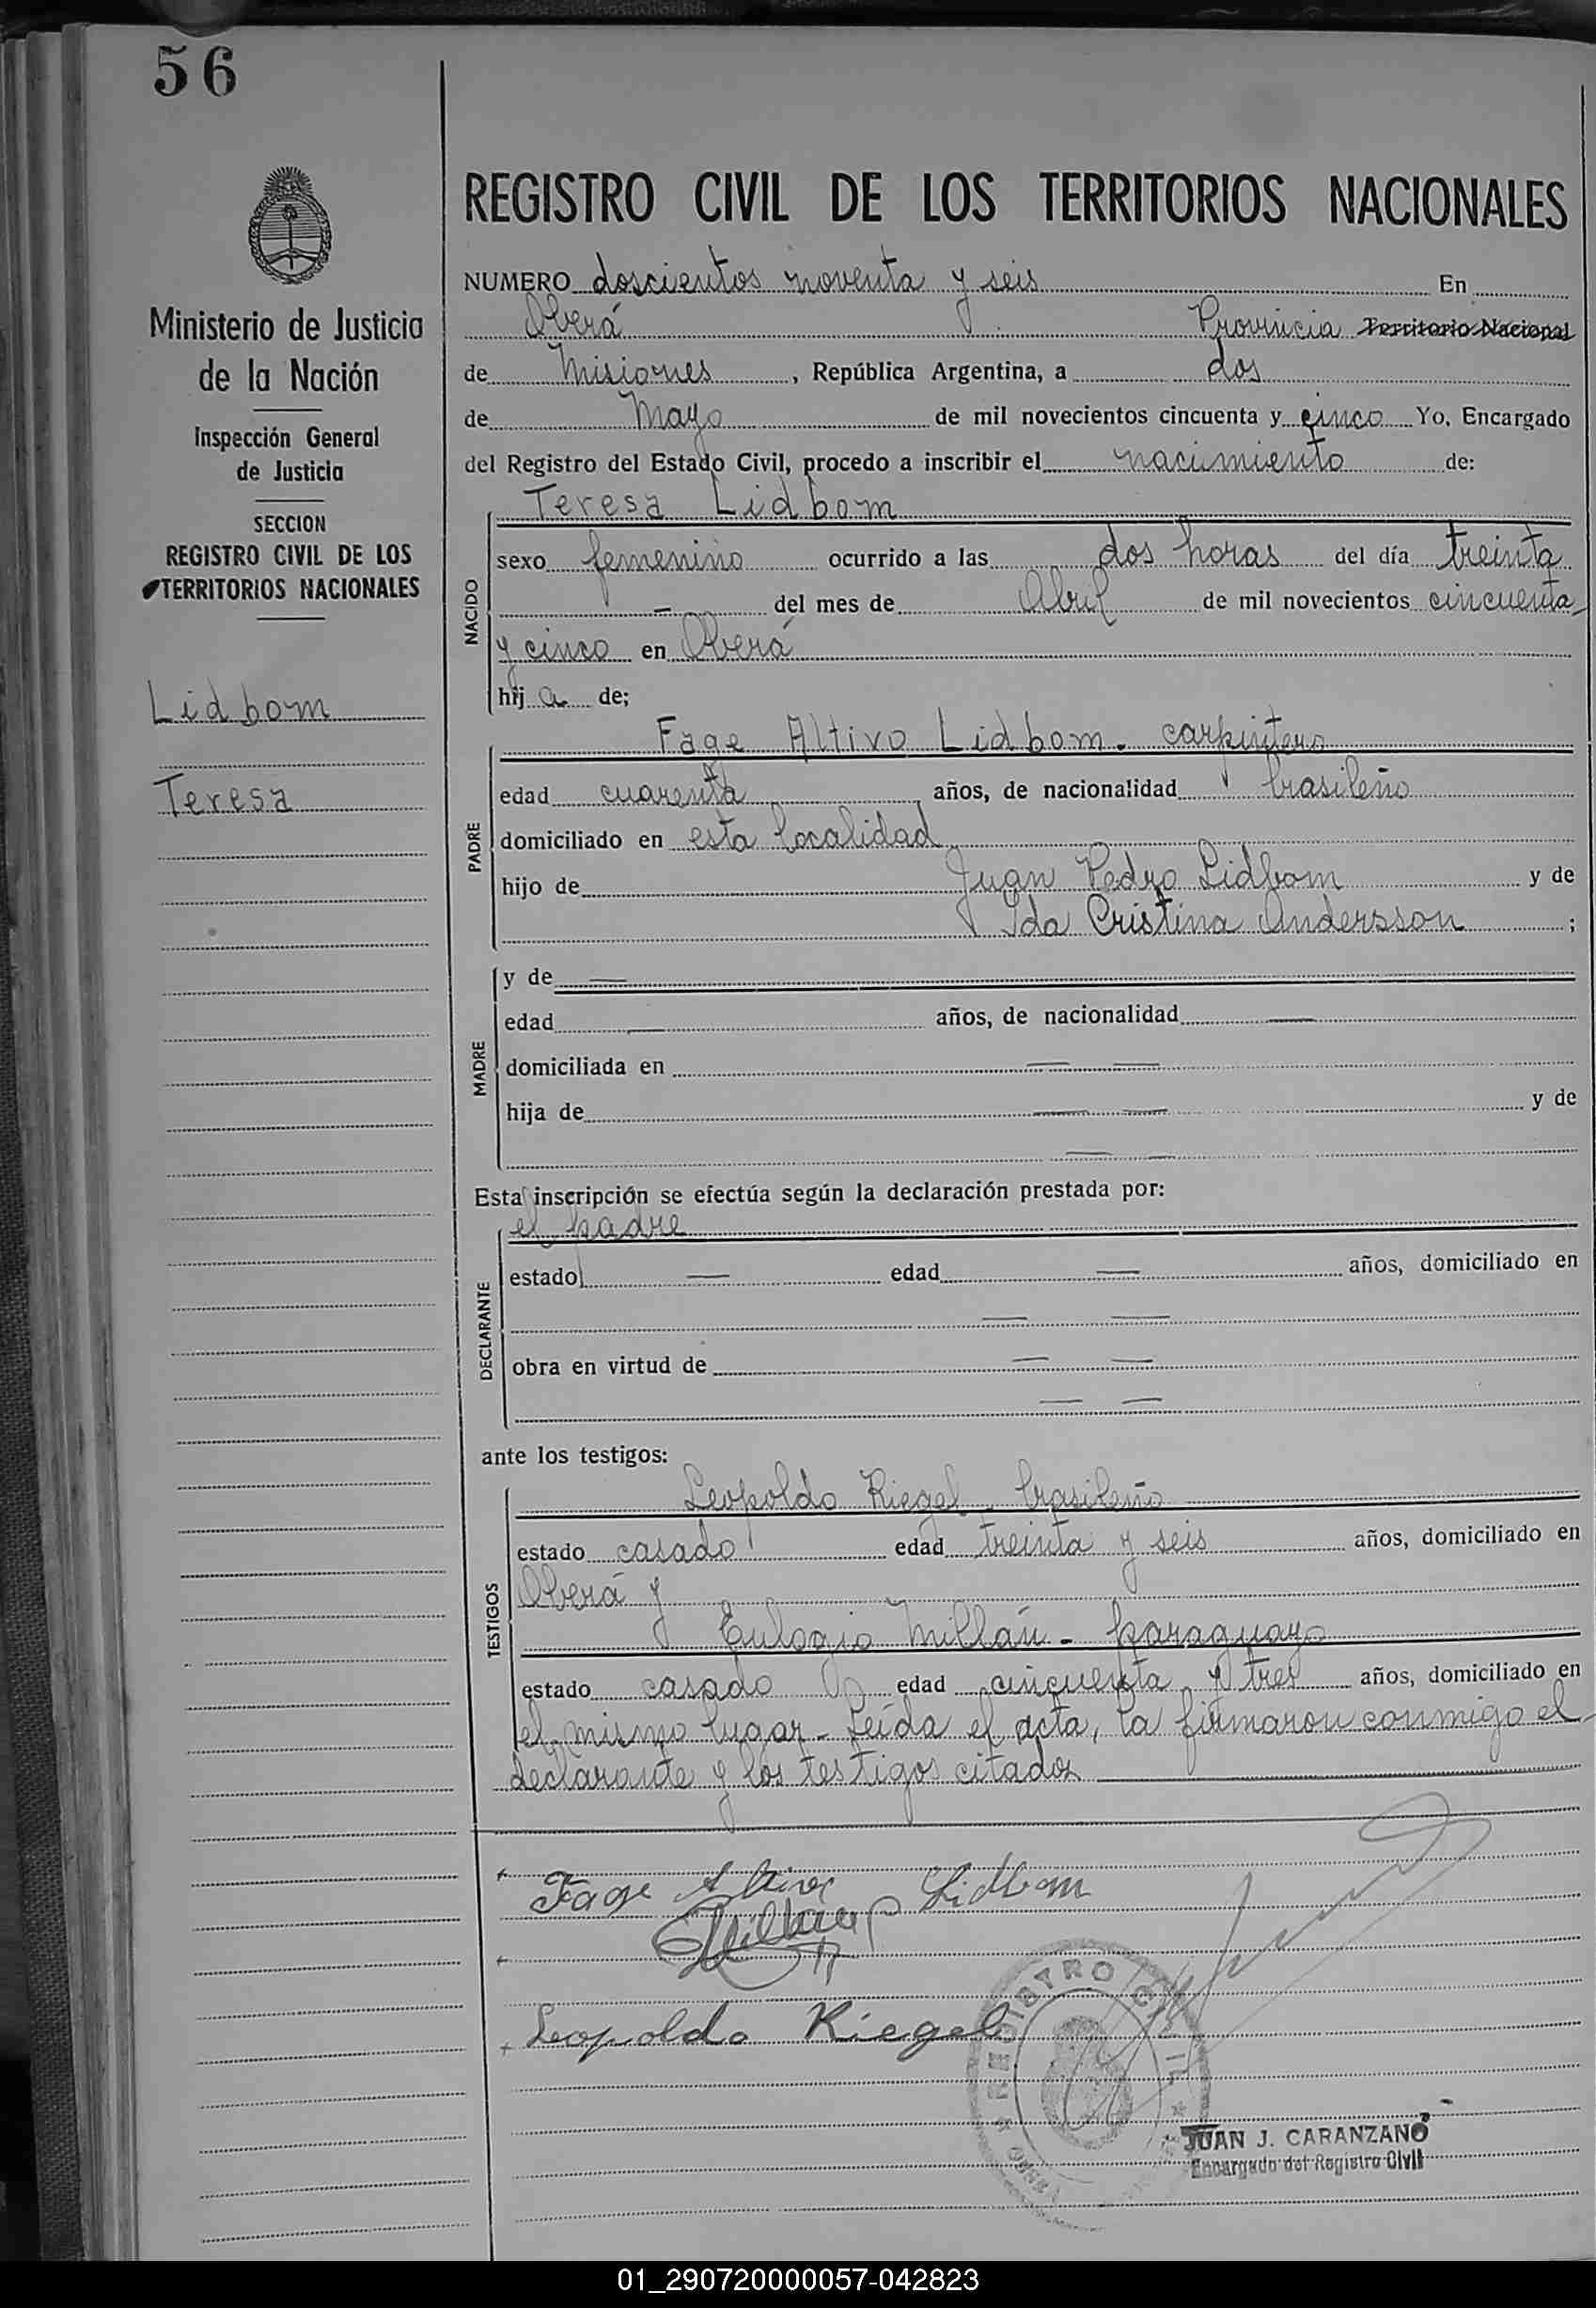 56
Ministerio de Justicia
de la Nación
Inspección General
de Justicia
SECCION
REGISTRO CIVIL DE LOS
TERRITORIOS NACIONALES
Lidbom
Teresa
REGISTRO CIVIL DE LOS TERRITORIOS NACIONALES
NUMERO doscientos noventa y seis En
Oberá Provincia Territorio Nacional
de Misiones, República Argentina, a dos
de Mayo de mil novecientos cincuenta y cinco Yo, Encargado
del Registro del Estado Civil, procedo a inscribir el nacimiento de:
Teresa Lidbom
NACIDO
sexo femenino ocurrido a las dos horas del día treinta
— del mes de Abril de mil novecientos cincuenta
y cinco en Oberá
hij a de;
PADRE
Fage Altivo Lidbom. carpintero
edad cuarenta años, de nacionalidad brasileño
domiciliado en esta localidad
hijo de Juan Pedro Lidbom y de
Ida Cristina Andersson ;
MADRE
y de —
edad — años, de nacionalidad —
domiciliada en — —
hija de — — y de
— —
Esta inscripción se efectúa según la declaración prestada por:
el padre
DECLARANTE
estado — edad — años, domiciliado en
— —
obra en virtud de — —
— —
ante los testigos:
TESTIGOS
Leopoldo Riegel - brasileño
estado casado edad treinta y seis años, domiciliado en
Oberá y
Eulogio Millán - paraguayo
estado casado edad cincuenta y tres años, domiciliado en
el mismo lugar - Leída el acta, la firmaron conmigo el
declarante y los testigos citados
Fage Altivo Lidbom
EMillan
Leopoldo Riegel
REGISTRO CIVIL
JUAN J. CARANZANO
Encargado del Registro Civil
01_290720000057-042823